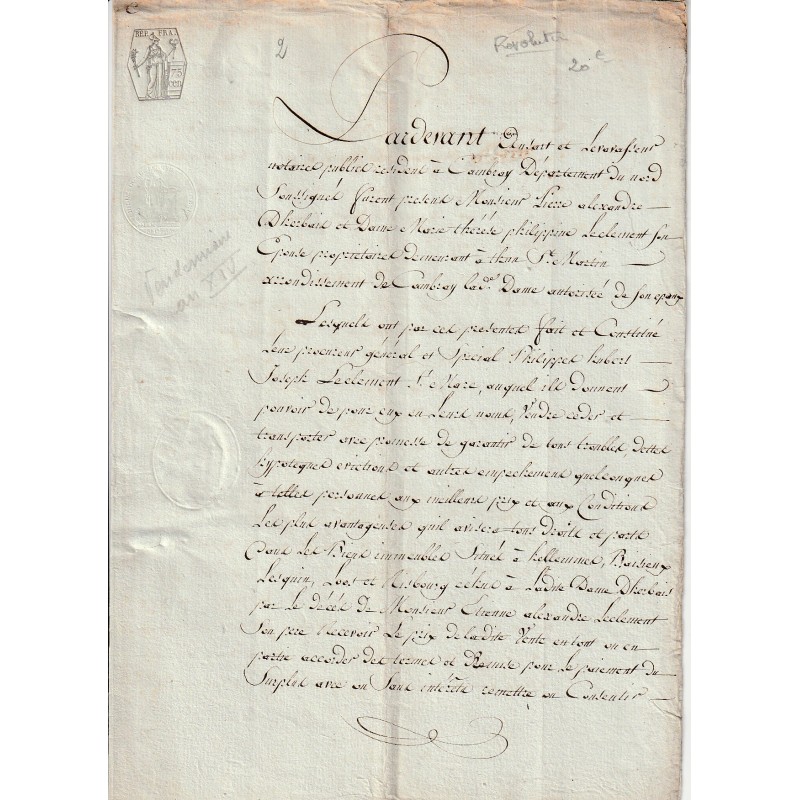 REP. FRA.
75
cen
2
Revolution
20 €
Pardevant Ansart et Levavasseur
notaires publics resident à Cambray Département du nord
Soussignés furent present Monsieur Pierre alexandre
Dherbais et Dame Marie thérése philippine Leclement Son
Epouse proprietaires demeurant à thun St. Martin
arrondissement de Cambray lad.e Dame autorisée de Son epoux
Vendemiaire
an XIV
Lesquels ont par ces presentes fait et Constitué
Leur procureur général et Special Philippes hubert
Joseph Leclement St. Mare, auquel ils donnent
pouvoir de pour eux en Leurs noms, Vendre ceder et
transporter avec promesse de garantir de tous troubles, dettes
hypoteques evictions et autres empechement quelconques
à telles personnes aux meilleurs prix et aux Conditions
Les plus avantageuses quil avisera tous droits et parts
Dans Les Biens immeubles Situés à hellemmes, Baisieux
Lesquin, Loos et échus à Ladite Dame Dherbais
par Le décés de Monsieur Etienne alexandre Leclement
Son pere Recevoir Le prix de ladite Vente en tout ou en
partie accorder des termes et Remise pour Le paiement du
Surplus avec ou Sans intérêts remettre ou Consentir